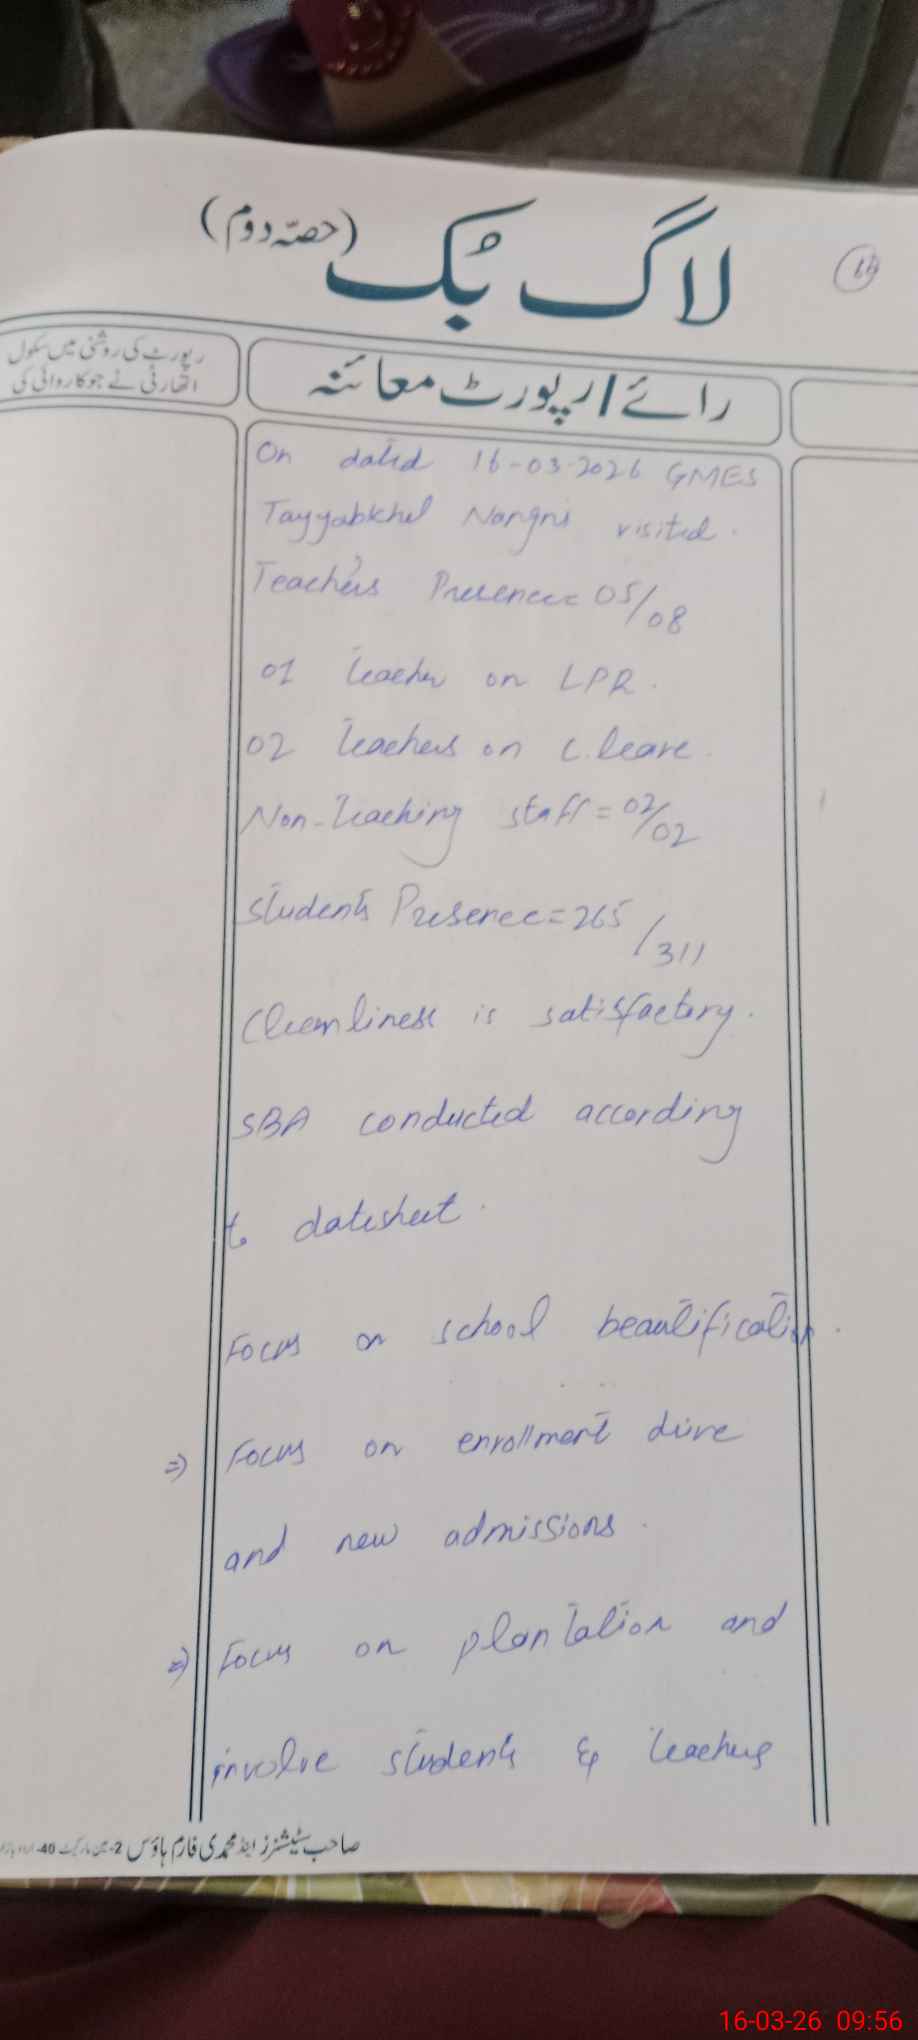 لاگ بُک (حصّہ دوم)
رپورٹ کی روشنی میں سکول
اتھارٹی نے جو کاروائی کی
رائے / رپورٹ معائنہ
On dated 16-03-2026 GMES
Tayyabkhel Nangri visited.
Teachers Presence= 05/08
01 teacher on LPR.
02 teachers on c.leave.
Non-teaching staff = 02/02
students Presence= 265/311
Cleanliness is satisfactory.
SBA conducted according
to datesheet.
Focus on school beautification.
=) Focus on enrollment drive
and new admissions.
=) Focus on plantation and
involve students & teachers
صاحب سٹیشنرز اینڈ محمدی فارم ہاؤس 2-
16-03-26 09:56